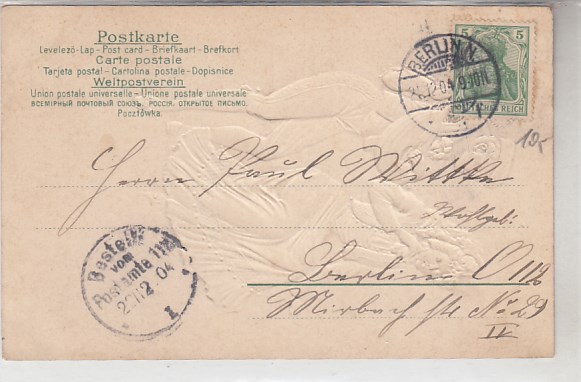 Postkarte
Levelező-Lap - Post card - Briefkaart - Brefkort
Carte postale
Tarjeta postal - Cartolina postale - Dopisnice
Weltpostverein
Union postale universelle - Unione postale universale
ВСЕМІРНЫЙ ПОЧТОВЫЙ СОЮЗЪ. РОССІЯ. ОТКРЫТОЕ ПИСЬМО.
Pocztówka
5 5
BERLIN N.
REICH
19,-
Herrn Paul Wittke
Wohlgeb:
Berlin O 112
Mirbach str No 29
IV
Bestellt
vom
Postamte 112
2 .12.04
I